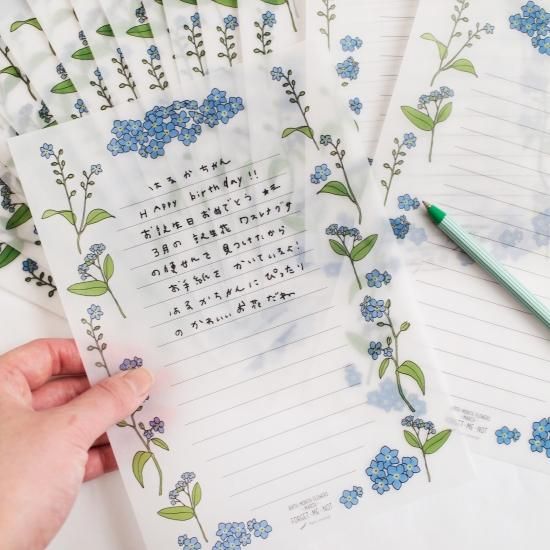 はるかちゃん
Happy birthday!!
お誕生日おめでとう
3月の 誕生花 ワスレナグサ
の便せんで 見つけたから
お手紙を かいています!
はるかちゃんに ぴったり
の かわいい お花だね
BIRTH MONTH FLOWERS
- MARCH -
FORGET-ME-NOT
BIRTH MONTH FLOWERS
- MARCH -
FORGET-ME-NOT